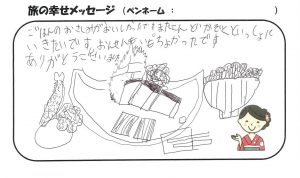 旅の幸せメッセージ（ペンネーム：　　　　　）
ごはんのおさしみがおいしかったですまたこんどかぞくといっしょに
いきたいです。おんせんもきもちよかったです
ありがとうございました